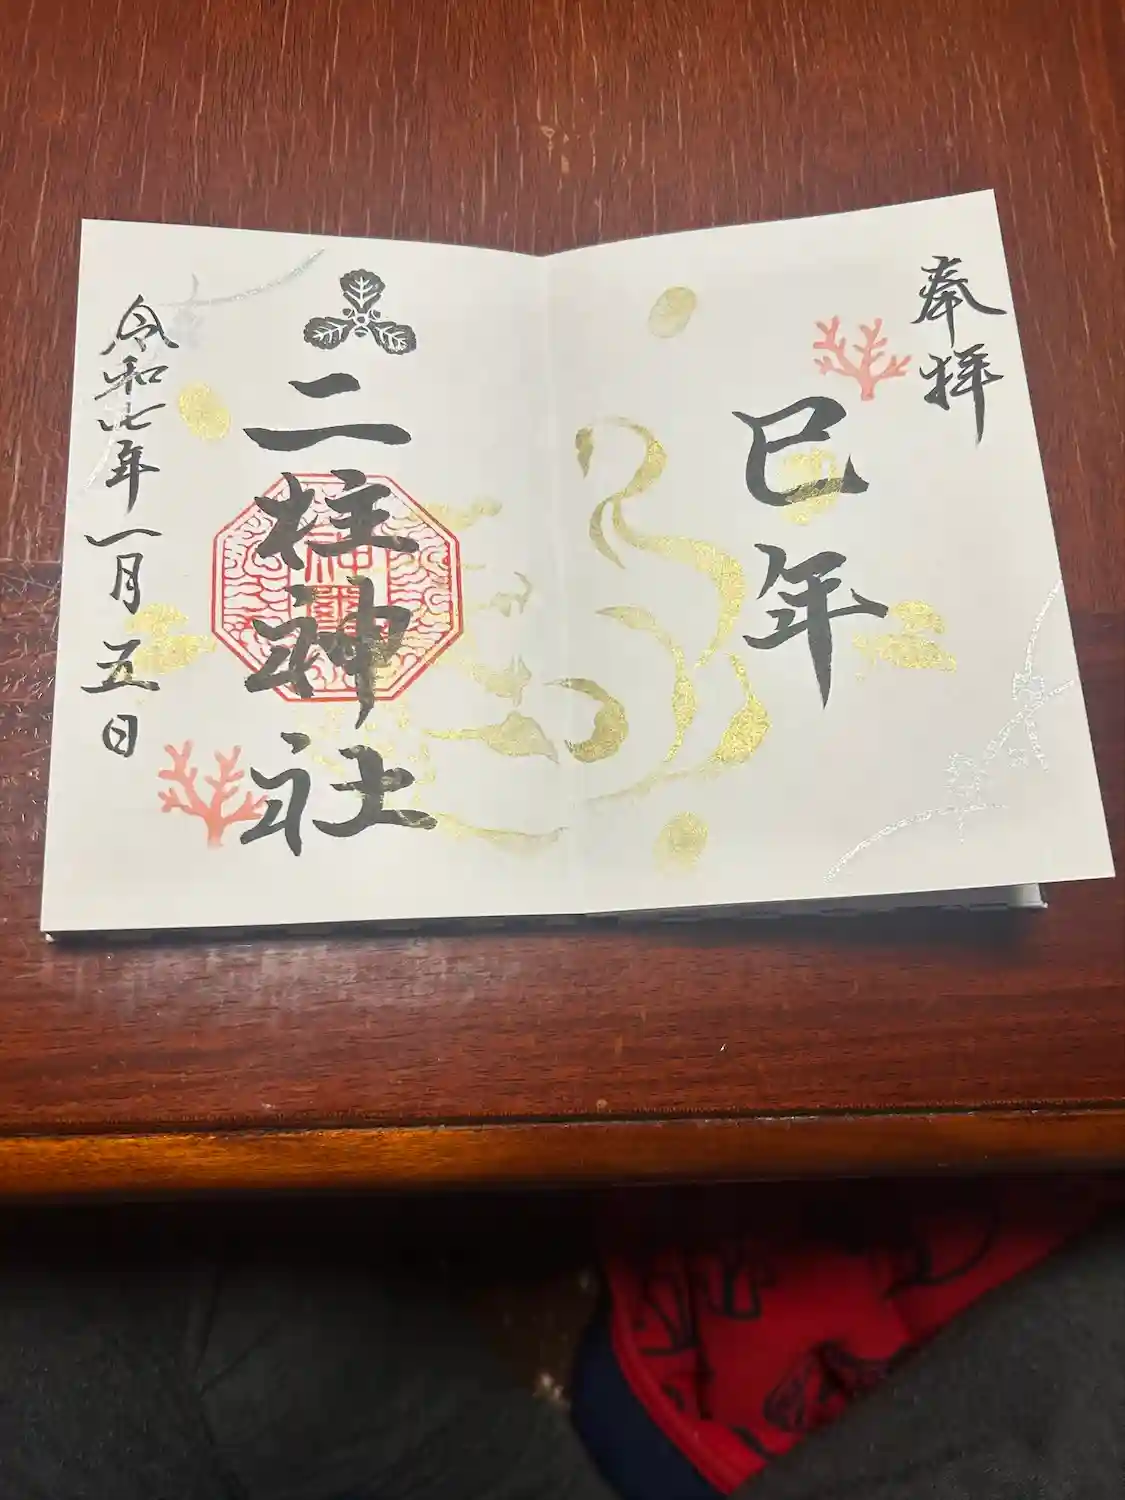 奉拝
巳年
二柱神社
令和七年一月五日